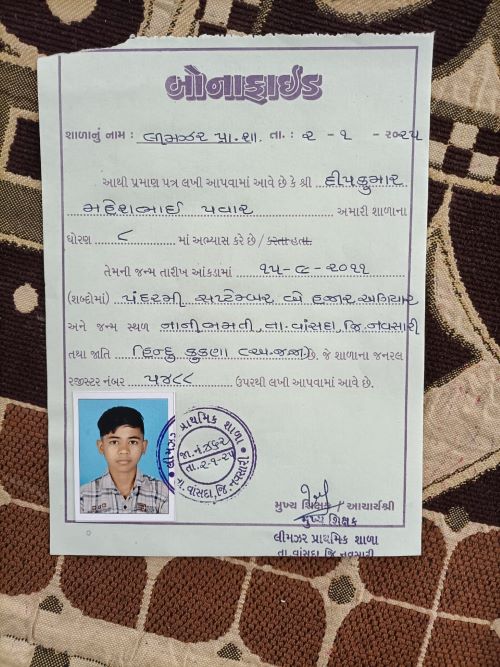 બોનાફાઈડ
શાળાનું નામ : લીમઝર પ્રા.શા. તા. : ૨ - ૧ - ૨૦૨૫
આથી પ્રમાણ પત્ર લખી આપવામાં આવે છે કે શ્રી દીપકુમાર
મહેશભાઈ પવાર અમારી શાળાના
ધોરણ ૮ માં અભ્યાસ કરે છે / કરતા હતા.
તેમની જન્મ તારીખ આંકડામાં ૧૫-૯-૨૦૧૧
(શબ્દોમાં) પંદરમી સપ્ટેમ્બર બે હજાર અગિયાર
અને જન્મ સ્થળ નાનીભમતી, તા. વાંસદા, જિ. નવસારી
તથા જાતિ હિન્દુ કુકણા (અ.જ.જા) છે. જે શાળાના જનરલ
રજીસ્ટર નંબર ૫૪૮૮ ઉપરથી લખી આપવામાં આવે છે.
લીમઝર પ્રાથમિક શાળા
જા.નં.
તા. ૨-૧-૨૫
તા.વાંસદા, જિ.નવસારી
મુખ્ય શિક્ષક / આચાર્યશ્રી
મુખ્ય શિક્ષક
લીમઝર પ્રાથમિક શાળા
તા.વાંસદા જિ.નવસારી